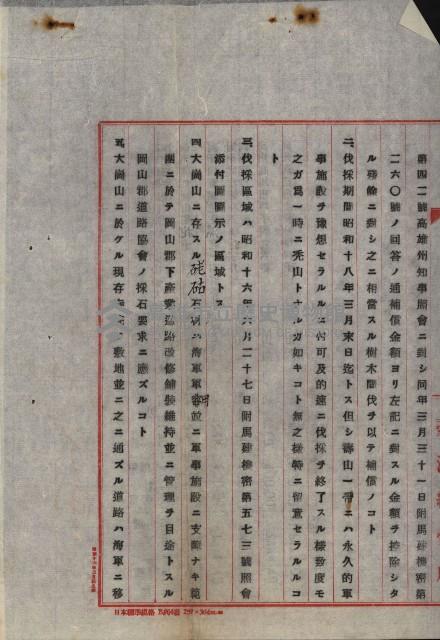 第四二號高雄州知事照會ニ對シ同年三月三十一日附馬經機密第
二六〇號ノ回答ノ通補償金額ヨリ左記ニ對スル金額ヲ控除シタ
ル殘餘ニ對シ之ニ相當スル樹木間伐ヲ以テ補償ノコト
二、伐採期間昭和十八年三月末日迄トス但シ壽山一帶ニハ永久的軍
事施設ヲ豫想セラルルニ付可及的速ニ伐採ヲ終了スル樣致度モ
之ガ爲一時ニ禿山トナルガ如キコト無之樣特ニ留意セラルルコ
ト
三、伐採區域ハ昭和十六年六月二十七日附馬經機密第五七三號照會
添付圖圖示ノ區域トス
四、大崗山ニ存スル硓𥑮石 ハ海軍軍 並ニ軍事施設ニ支障ナキ範
圍ニ於テ岡山郡下產業道路改修舖裝維持並ニ管理ヲ目途トスル
岡山郡道路協會ノ採石要求ニ應ズルコト
五、大崗山ニ於ケル現存 敷地並ニ之ニ通ズル道路ハ海軍ニ移
日本標準規格 B列4號 257×364